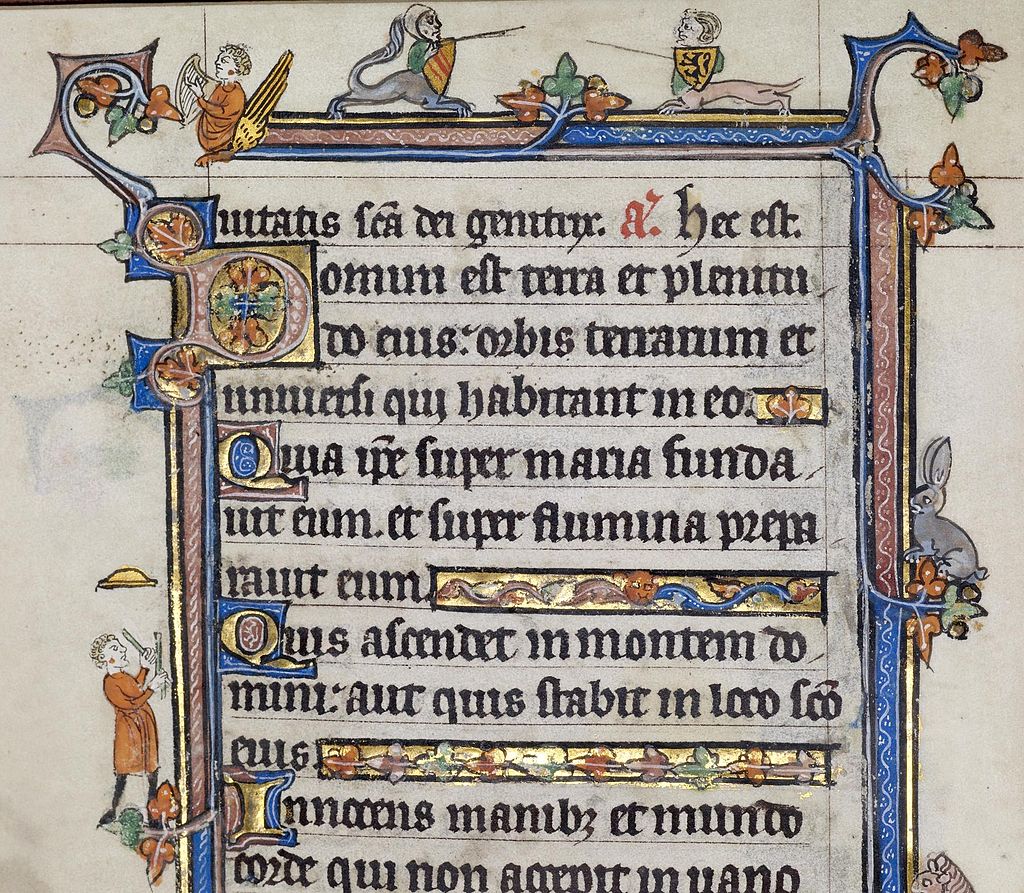 uitatis sc̄a dei genitrix. a'. Hec est.
Domini est terra et plenitu
do eius: orbis terrarum et
uniuersi qui habitant in eo.
Quia ip̄e super maria funda
uit eum. et super flumina prepa
rauit eum.
Quis ascendet in montem do
mini: aut quis stabit in loco sc̄o
eius
Innocens manibꝫ et mundo
corde qui non accepit in uano